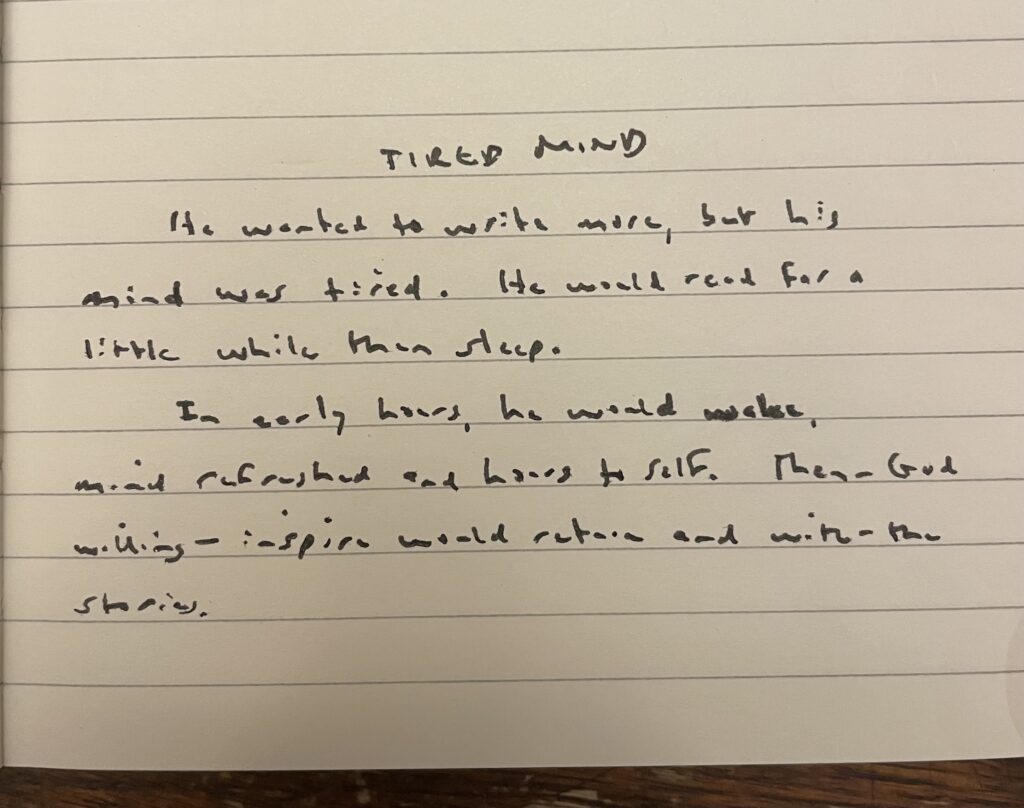 TIRED MIND
He wanted to write more, but his
mind was tired. He would read for a
little while then sleep.
In early hours, he would wake,
mind refreshed and hours to self. Then - God
willing - inspire would return and with the
stories.